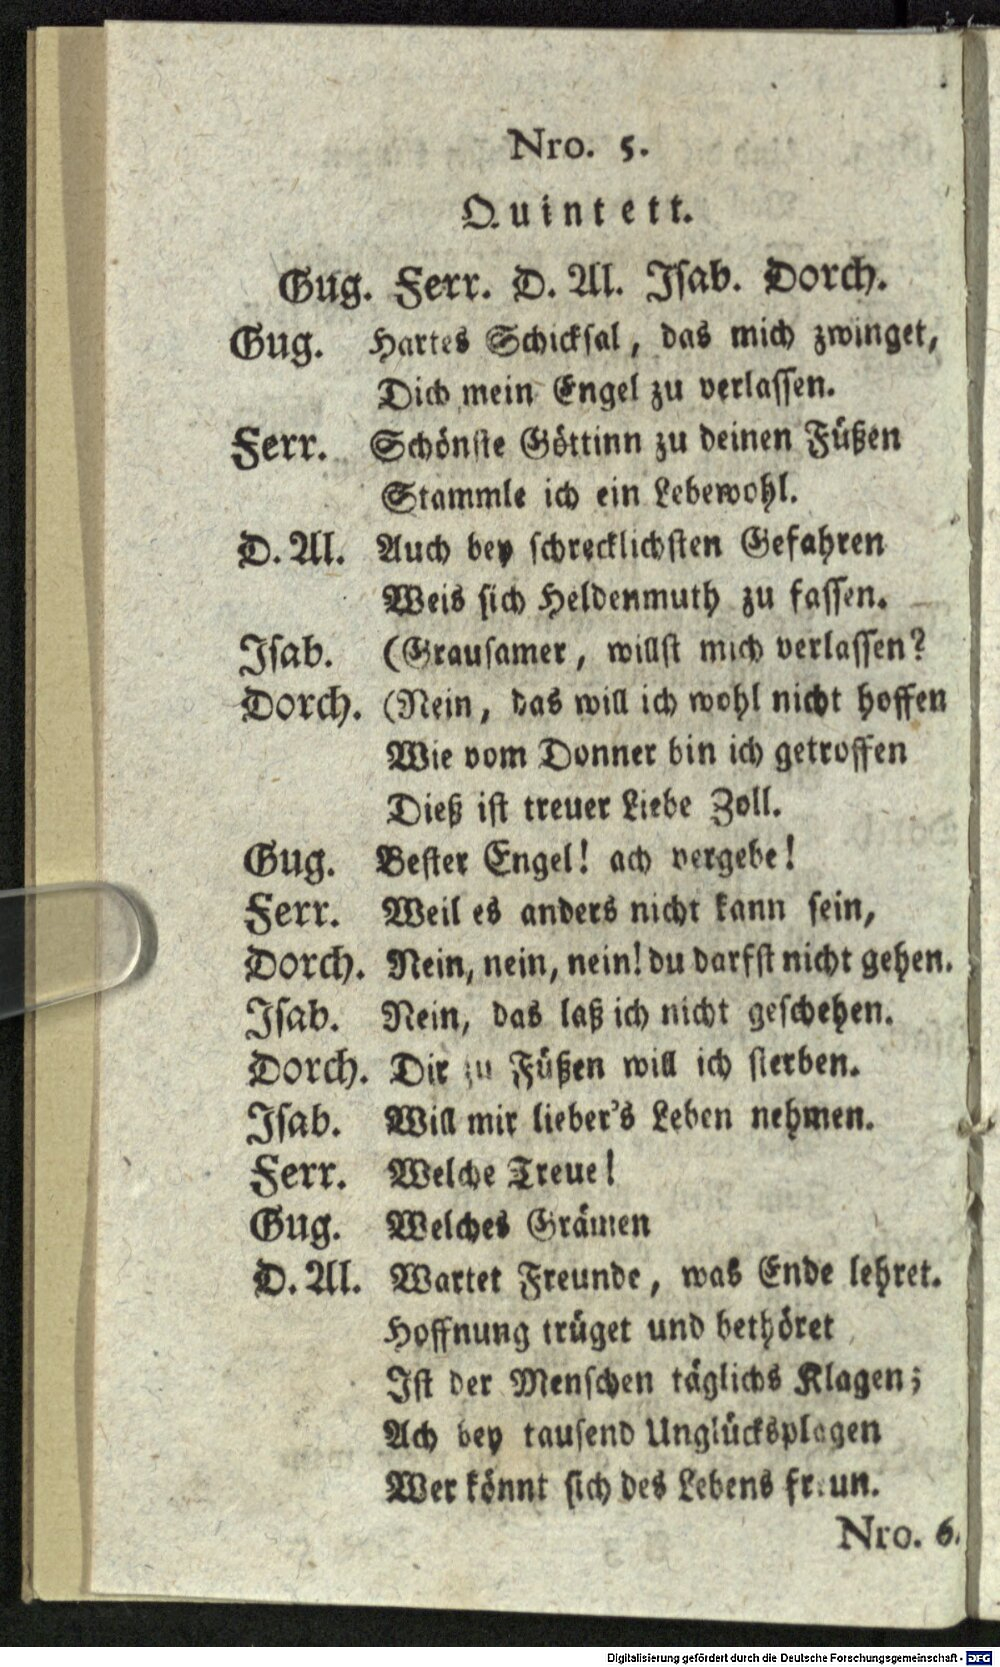 Nro. 5.
Quintett.
Gug. Ferr. D. Al. Isab. Dorch.
Gug. Hartes Schicksal, das mich zwinget,
Dich mein Engel zu verlassen.
Ferr. Schönste Göttinn zu deinen Füßen
Stammle ich ein Lebewohl.
D. Al. Auch bey schrecklichsten Gefahren
Weis sich Heldenmuth zu fassen.
Isab. (Grausamer, willst mich verlassen?
Dorch. (Nein, das will ich wohl nicht hoffen
Wie vom Donner bin ich getroffen
Dieß ist treuer Liebe Zoll.
Gug. Bester Engel! ach vergebe!
Ferr. Weil es anders nicht kann sein,
Dorch. Nein, nein, nein! du darfst nicht gehen.
Isab. Nein, das laß ich nicht geschehen.
Dorch. Dir zu Füßen will ich sterben.
Isab. Will mir lieber's Leben nehmen.
Ferr. Welche Treue!
Gug. Welches Grämen
D. Al. Wartet Freunde, was Ende lehret.
Hoffnung trüget und bethöret
Ist der Menschen täglichs Klagen;
Ach bey tausend Unglücksplagen
Wer könnt sich des Lebens freun.
Nro. 6.
Digitalisierung gefördert durch die Deutsche Forschungsgemeinschaft - DFG